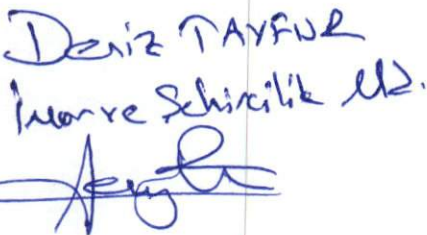 Deniz TAYFUR
İmar ve Şehircilik Md.